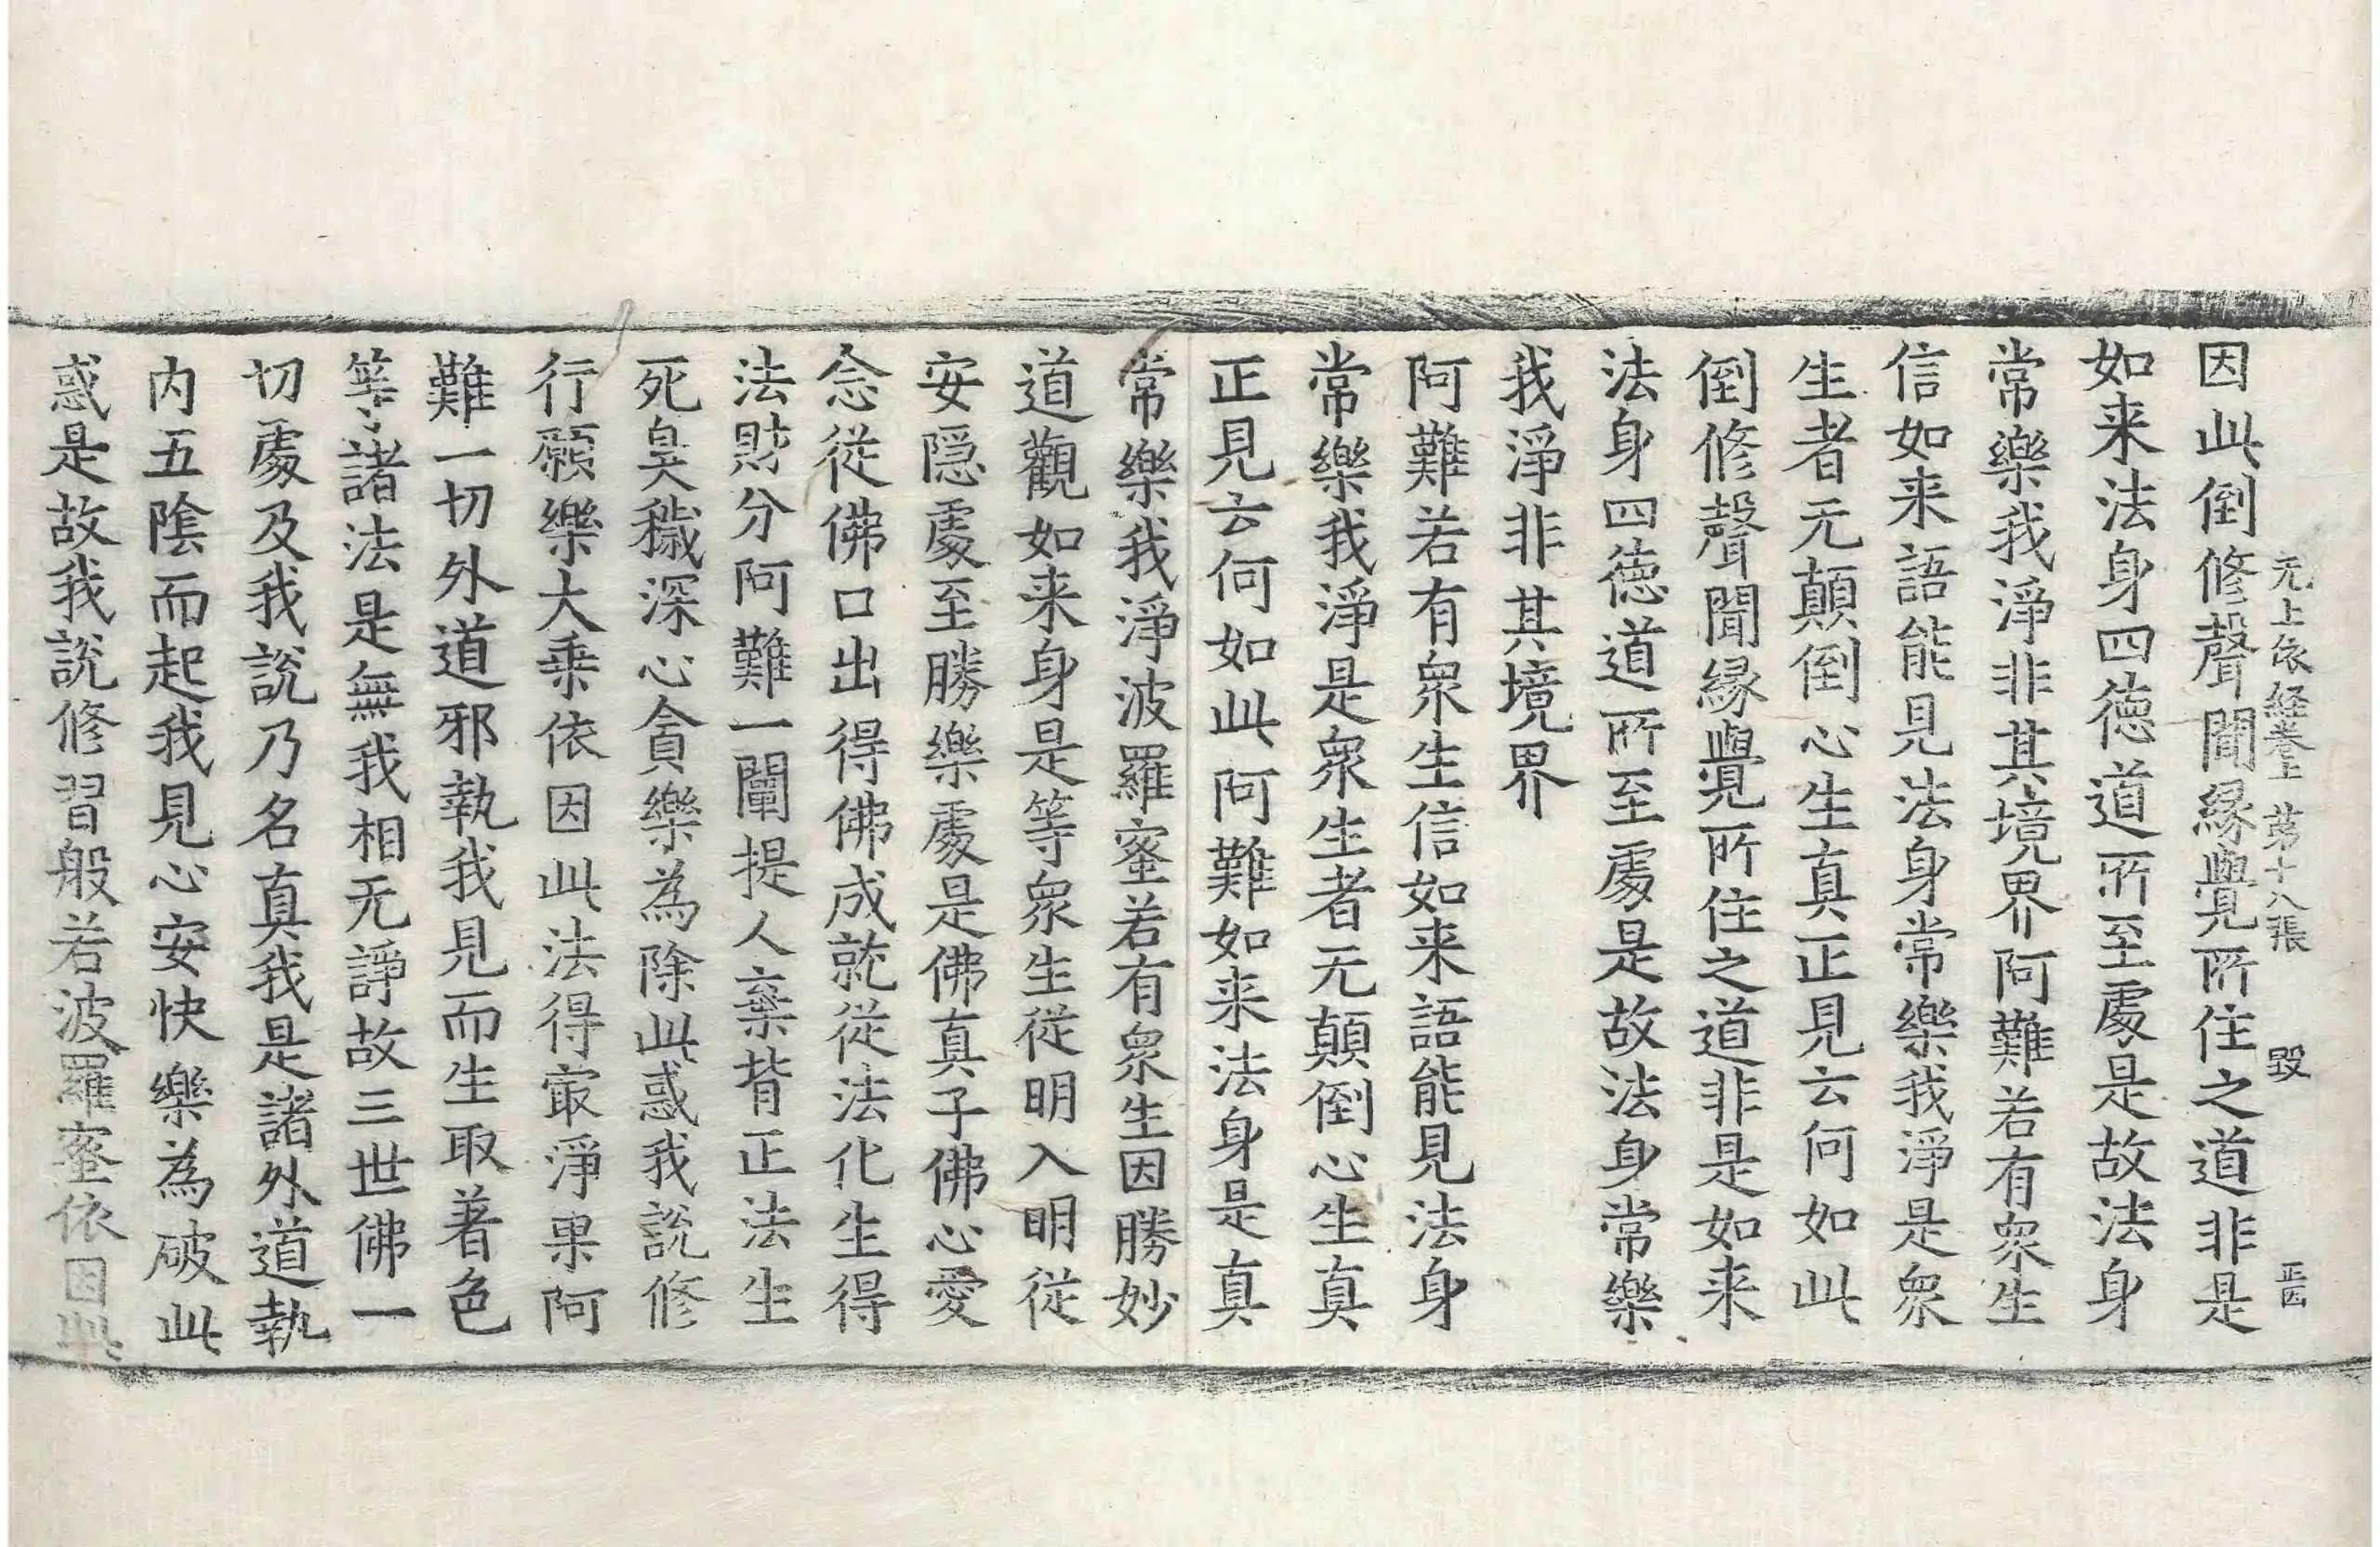 无上依經卷上 苐十八張 毀 正因
因此倒修聲聞緣覺所住之道非是
如来法身四德道所至處是故法身
常樂我淨非其境界阿難若有眾生
信如来語能見法身常樂我淨是眾
生者无顛倒心生真正見云何如此
倒修聲聞緣覺所住之道非是如来
法身四德道所至處是故法身常樂
我淨非其境界
阿難若有眾生信如来語能見法身
常樂我淨是眾生者无顛倒心生真
正見云何如此阿難如来法身是真
常樂我淨波羅蜜若有眾生因勝妙
道觀如来身是等眾生從明入明從
安隱處至勝樂處是佛真子佛心愛
念從佛口出得佛成就從法化生得
法財分阿難一闡提人棄背正法生
死臭穢深心貪樂為除此惑我說修
行願樂大乘依因此法得㝡淨果阿
難一切外道邪執我見而生取著色
等諸法是無我相无諍故三世佛一
切處及我說乃名真我是諸外道執
内五陰而起我見心安快樂為破此
惑是故我說修習般若波羅蜜依因此